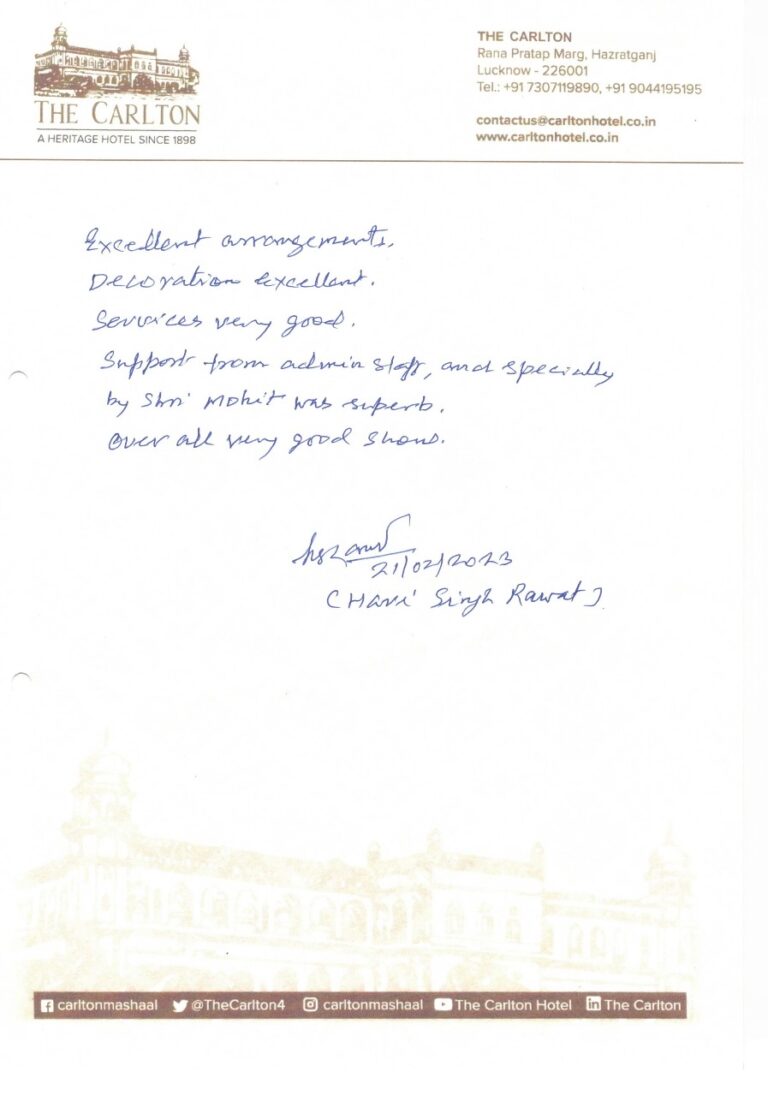 THE CARLTON
A HERITAGE HOTEL SINCE 1898
THE CARLTON
Rana Pratap Marg, Hazratganj
Lucknow - 226001
Tel.: +91 7307119890, +91 9044195195
contactus@carltonhotel.co.in
www.carltonhotel.co.in
Excellent arrangements.
Decoration excellent.
Services very good.
Support from admin staff, and specially
by Shri Mohit was superb.
Over all very good show.
21/02/2023
(Hari Singh Rawat)
carltonmashaal @TheCarlton4 carltonmashaal The Carlton Hotel The Carlton